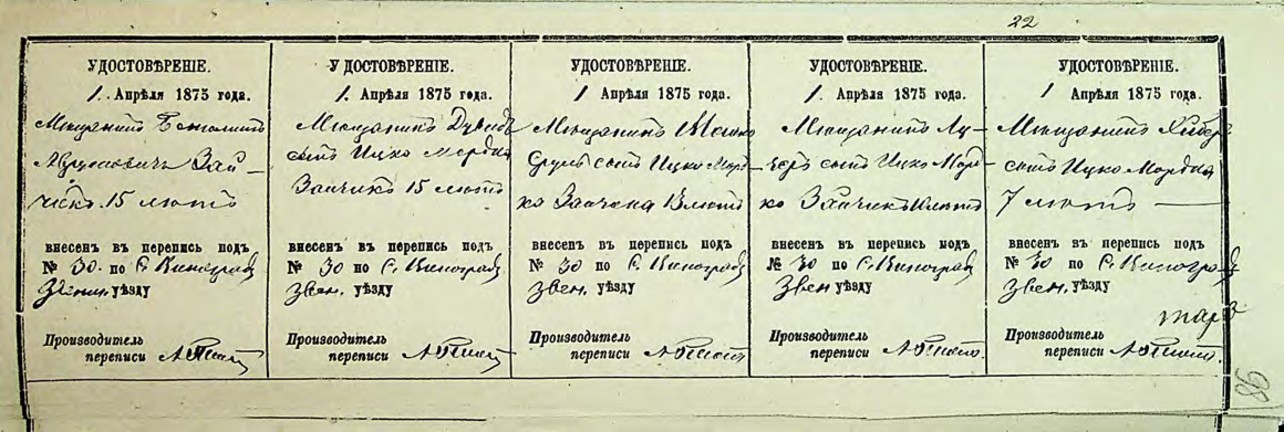 22
УДОСТОВѢРЕНІЕ.
1. Апрѣля 1875 года.
Мѣщанинъ
Зай–
чикъ 15 лѣтъ
внесенъ въ перепись подъ
№ 30. по с. Виноградъ
Звени. уѣзду
Производитель
переписи
УДОСТОВѢРЕНІЕ.
1. Апрѣля 1875 года.
Мѣщанинъ Дувидъ
сынъ Ицко Мордка
Зайчикъ 15 лѣтъ
внесенъ въ перепись подъ
№ 30 по с. Виноградъ
Звен. уѣзду
Производитель
переписи
УДОСТОВѢРЕНІЕ.
1 Апрѣля 1875 года.
Мѣщанинъ
Сруль сынъ Ицко Морд–
ко 13 лѣтъ
внесенъ въ перепись подъ
№ 30 по с. Виноградъ
Звен. уѣзду
Производитель
переписи
УДОСТОВѢРЕНІЕ.
1. Апрѣля 1875 года.
Мѣщанинъ
сынъ Ицко Морд–
ко Зайчикъ лѣтъ
внесенъ въ перепись подъ
№ 30 по с. Виноградъ
Звен уѣзду
Производитель
переписи
УДОСТОВѢРЕНІЕ.
1 Апрѣля 1875 года.
Мѣщанинъ
сынъ Ицко Мордка
7 лѣтъ
внесенъ въ перепись подъ
№ 30 по с. Виноградъ
Звен. уѣзду
Производитель
переписи
98